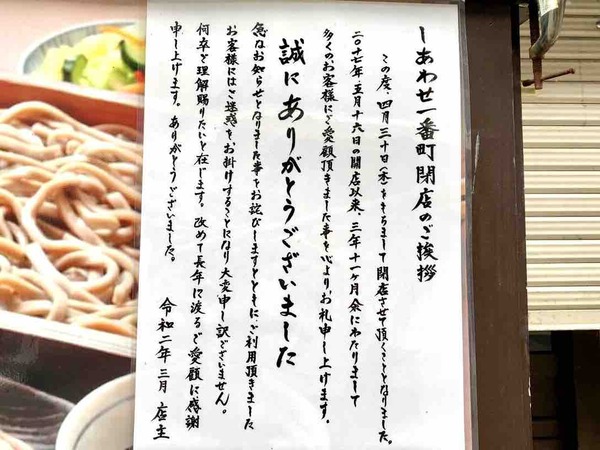 しあわせ一番町閉店のご挨拶
この度、四月三十日（木）をもちまして閉店させて頂くこととなりました。
二〇十七年五月十六日の開店以来、三年十一ヶ月余にわたりまして
多くのお客様にご愛顧頂きました事を心よりお礼申し上げます。
誠にありがとうございました
急なお知らせとなりました事をお詫びしますとともに、ご利用頂きました
お客様にはご迷惑をお掛けすることになり大変申し訳ございません。
何卒ご理解賜りたいと存じます。改めて長年に渡るご愛顧に感謝
申し上げます。ありがとうございました。
令和二年三月 店主